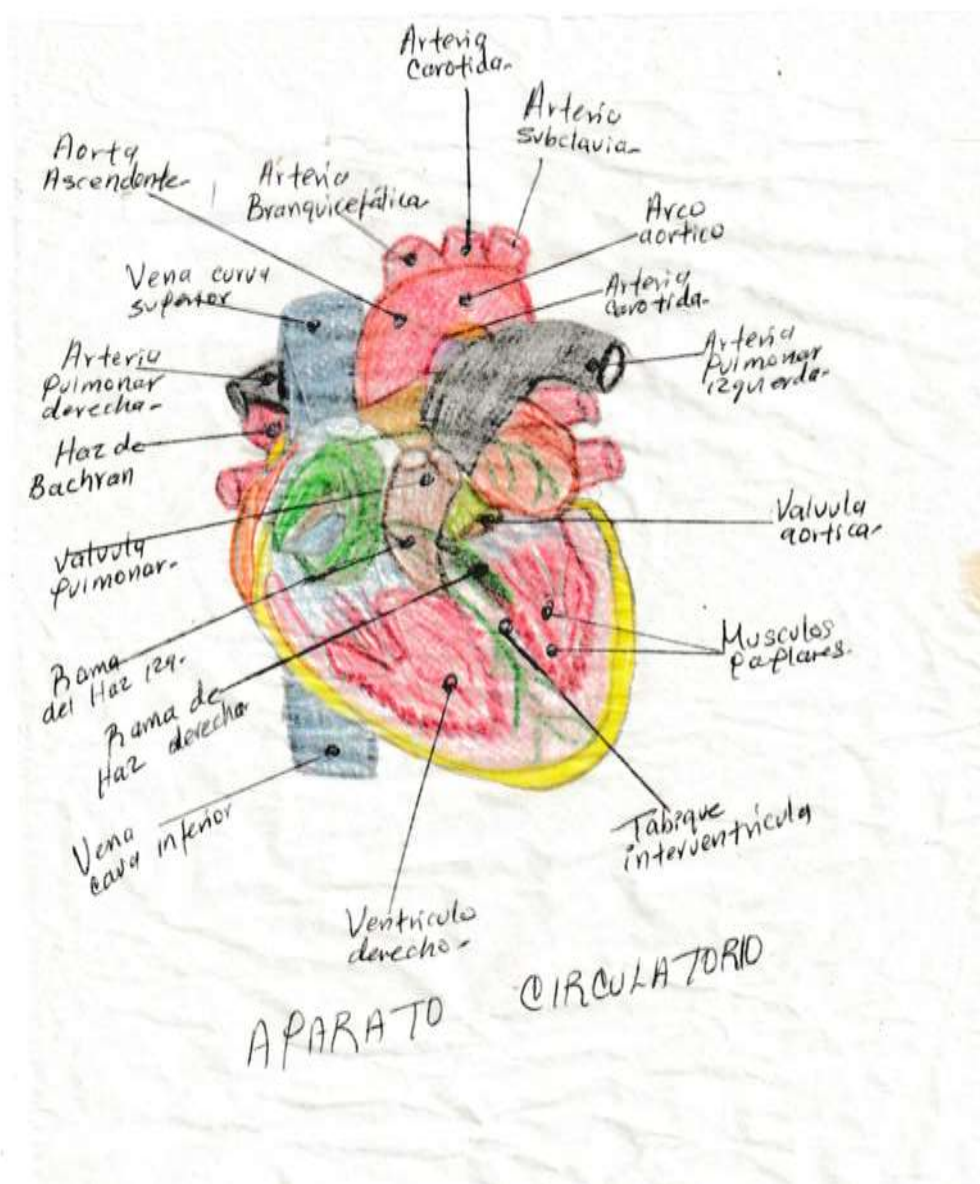 Arteria
Carotida-
Arteria
subclavia-
Aorta
Ascendente-
Arteria
Branquicefálica-
Arco
aortico
Vena curva
superior
Arteria
carotida-
Arteria
pulmonar
derecha-
Arteria
Pulmonar
izquierda-
Haz de
Bachran
Valvula
aortica-
Valvula
pulmonar-
Musculos
paplares-
Rama
del Haz izq.
Rama de
Haz derecha
Vena
cava inferior
Tabique
interventricula
Ventriculo
derecho-
APARATO CIRCULATORIO